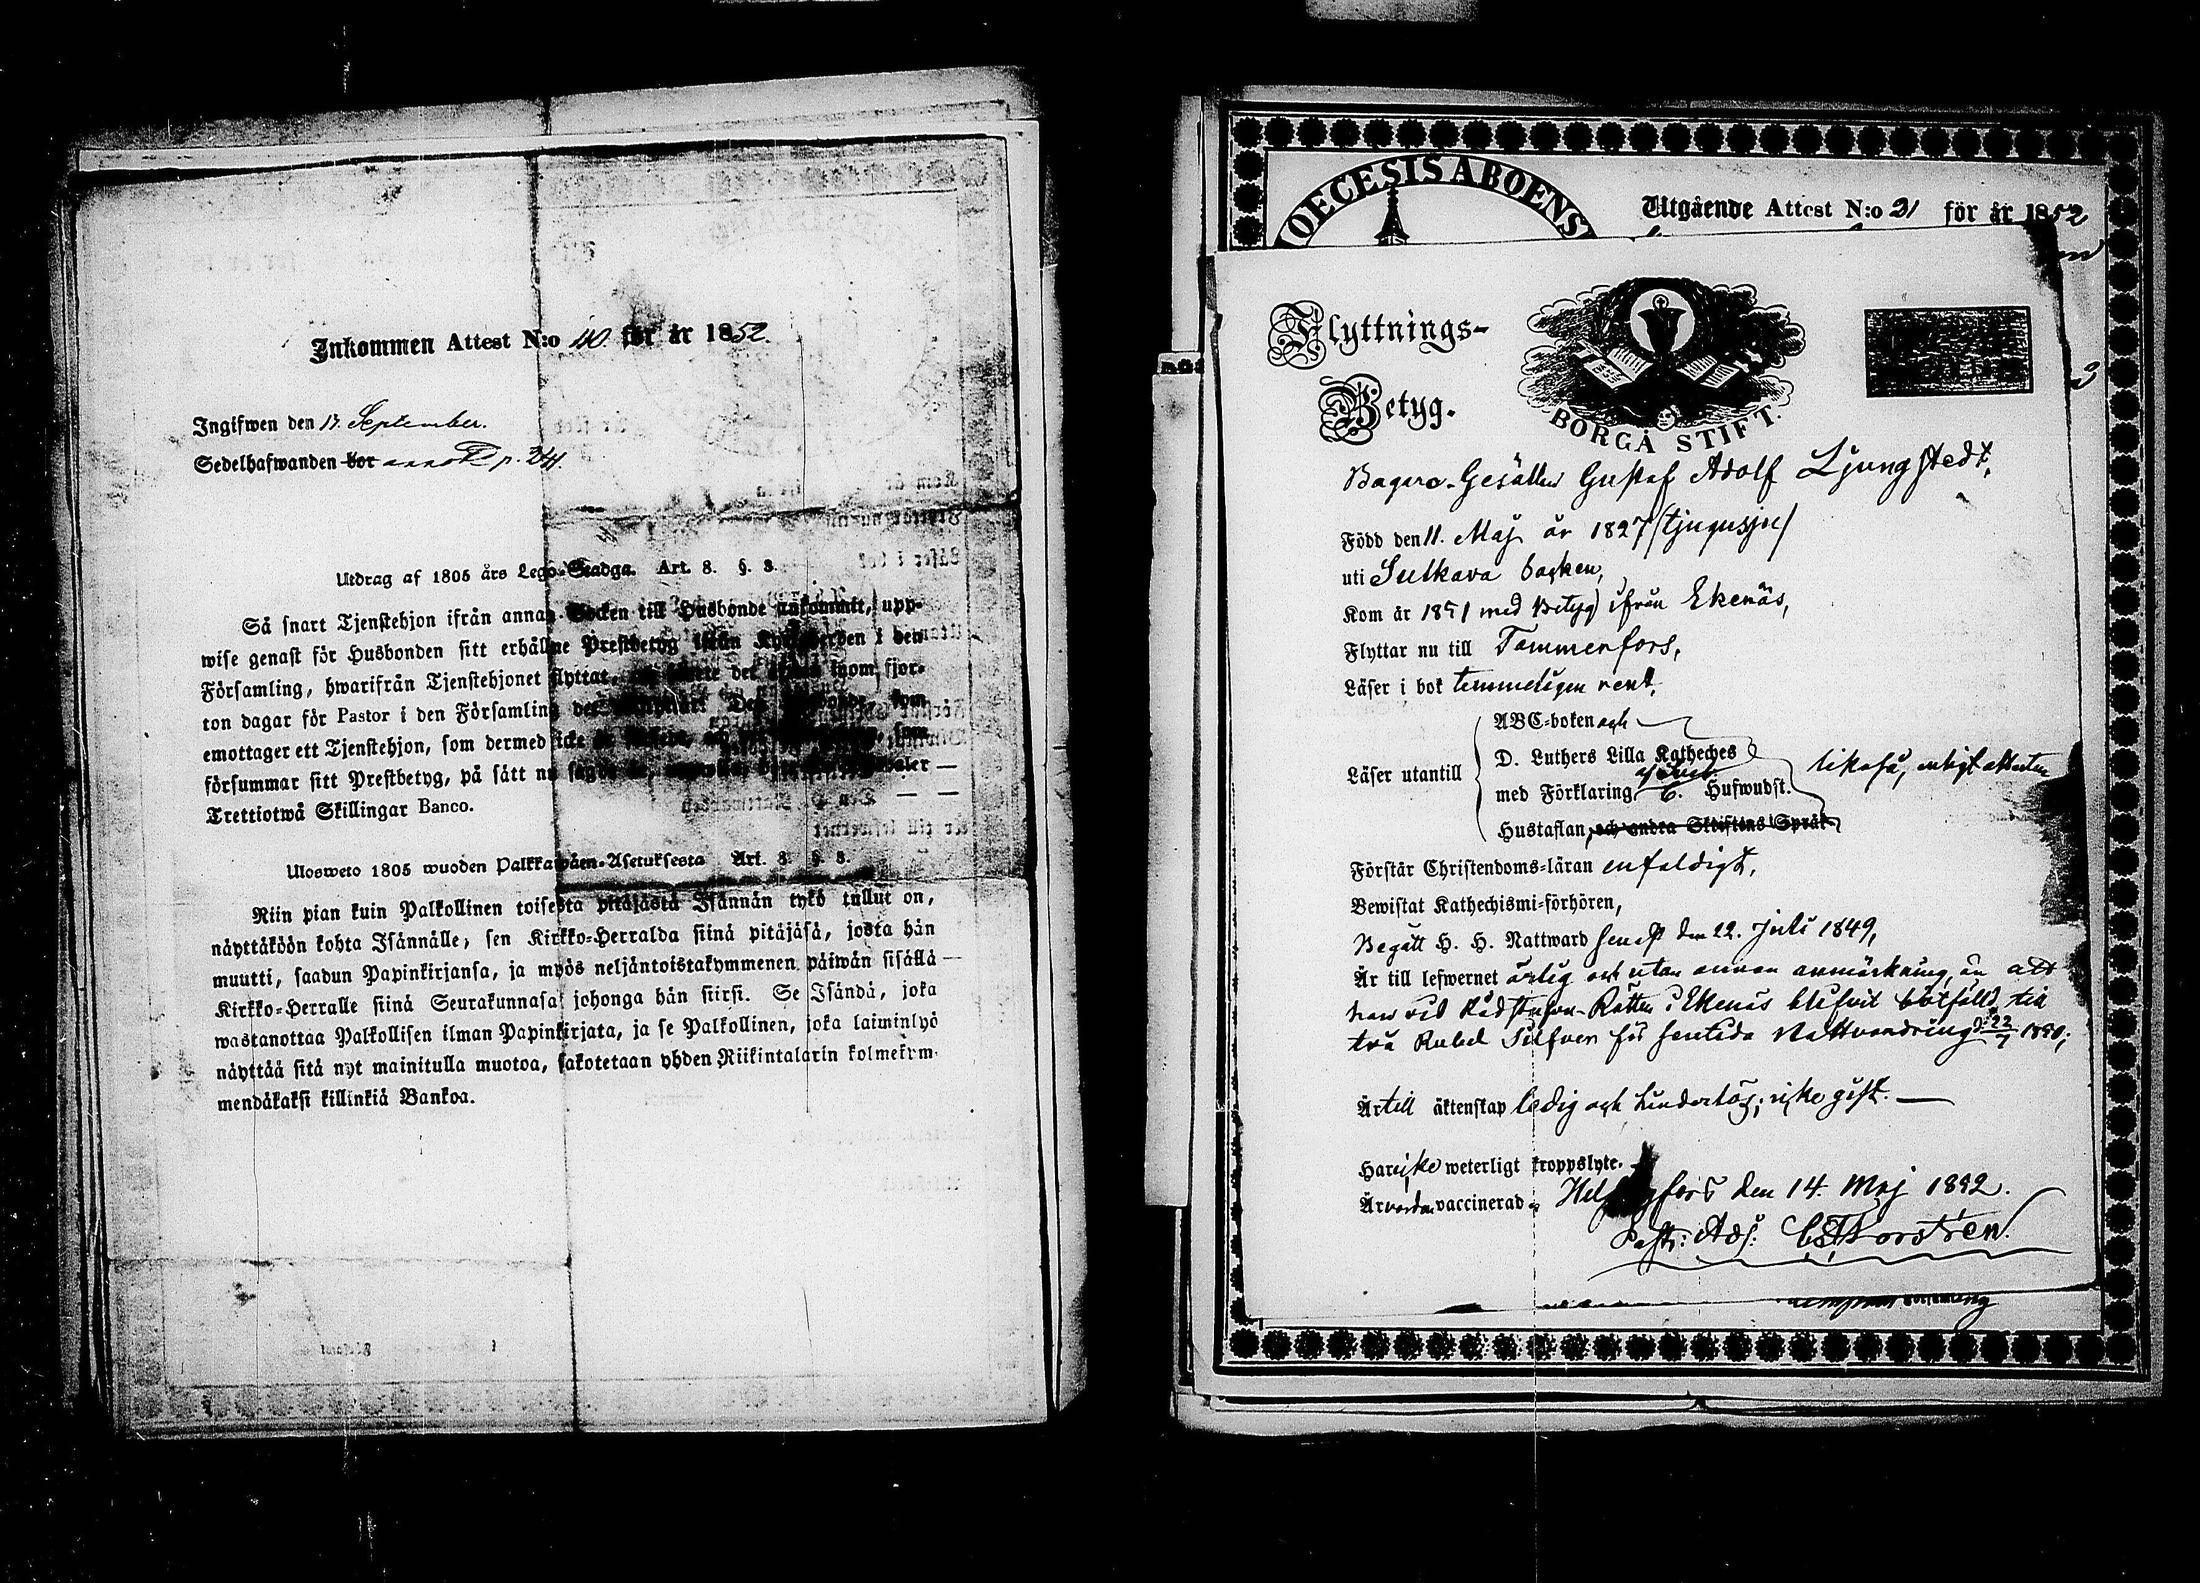 Inkommen Attest N:o 40 för år 1852.
Ingifwen den 17. September.
Sedelhafwanden bor p. 241.
Utdrag af 1805 års Lego-Stadga. Art. 8. §. 8.
Så snart Tjenstehjon ifrån annan Socken till Husbonde ankommit, upp-
wise genast för Husbonden sitt erhållne Prestbetyg ifrån Kyrkoherden i den
Församling, hwarifrån Tjenstehjonet flyttat, inom fjor-
ton dagar för Pastor i den Församling som
emottager ett Tjenstehjon, som dermed icke
försummar sitt Prestbetyg, på sätt nu
Trettiotwå Skillingar Banco.
Ulosweto 1805 wuoden Palkkawäen-Asetuksesta Art. 8. §. 8.
Niin pian kuin Palkollinen toisesta pitäjästä Isännän tykö tullut on,
näyttäköön kohta Isännälle, sen Kirkko-Herralda siinä pitäjäsä, josta hän
muutti, saadun Papinkirjansa, ja myös neljäntoistakymmenen päiwän sisällä
Kirkko-Herralle siinä Seurakunnasa johonga hän siirsi. Se Isändä, joka
wastanottaa Palkollisen ilman Papinkirjata, ja se Palkollinen, joka laiminlyö
näyttää sitä nyt mainitulla muotoa, sakotetaan yhden Riikintalarin kolmekym-
mendäkaksi killinkiä Bankoa.
DIOECESIS ABOENS
Utgående Attest N:o 21 för år 1852
Flyttnings-
Betyg.
BORGÅ STIFT.
Bagare-Gesällen Gustaf Adolf Ljungstedt,
Född den 11. Maj år 1827 /tjugusju/
uti Sulkava socken,
Kom år 1851 med Betyg ifrån Ekenäs,
Flyttar nu till Tammerfors,
Läser i bok temmeligen rent,
Läser utantill
ABC-boken och
D. Luthers Lilla Katheches
med Förklaring 6. Hufwudst.
Hustaflan, och andra Skriftens Språk
likaså, enligt attesten
Förstår Christendoms-läran enfaldigt,
Bewistat Kathechismi-förhören,
Begått H. H. Nattward senast den 22. Juli 1849,
Är till lefwernet ärlig och utan annan anmärkning, än att
han vid Rådstufvu-Rätten i Ekenäs blifvit bötfälld till
två Rubel Silfver för sentida Nattvandring d. 22/7 1850;
Är till äktenskap ledig och hinderlös; icke gift.
Har icke weterligt kroppslyte.
Är vorden vaccinerad. Helsingfors den 14. Maj 1852.
Past: Adj: